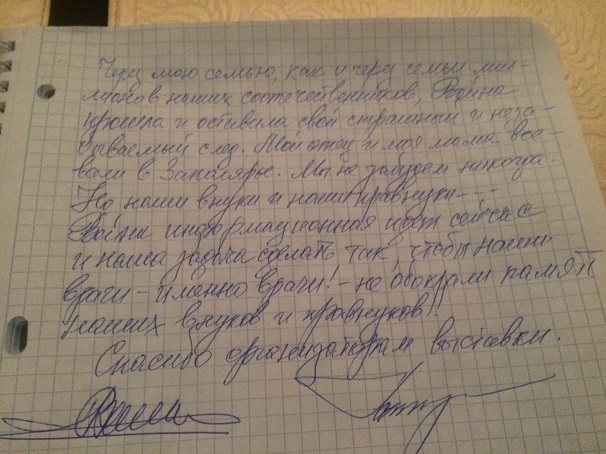 Через мою семью, как и через семьи мил-
лионов наших соотечественников, Война
прошла и оставила свой страшный и неза-
бываемый след. Мой отец и моя мама вое-
вали в Заполярье. Мы не забудем никогда.
Но наши внуки и наши правнуки---
Война информационная идет сейчас
и наша задача сделать так, чтобы наши
враги - именно враги! - не обокрали память
наших внуков и правнуков!
Спасибо организаторам выставки.